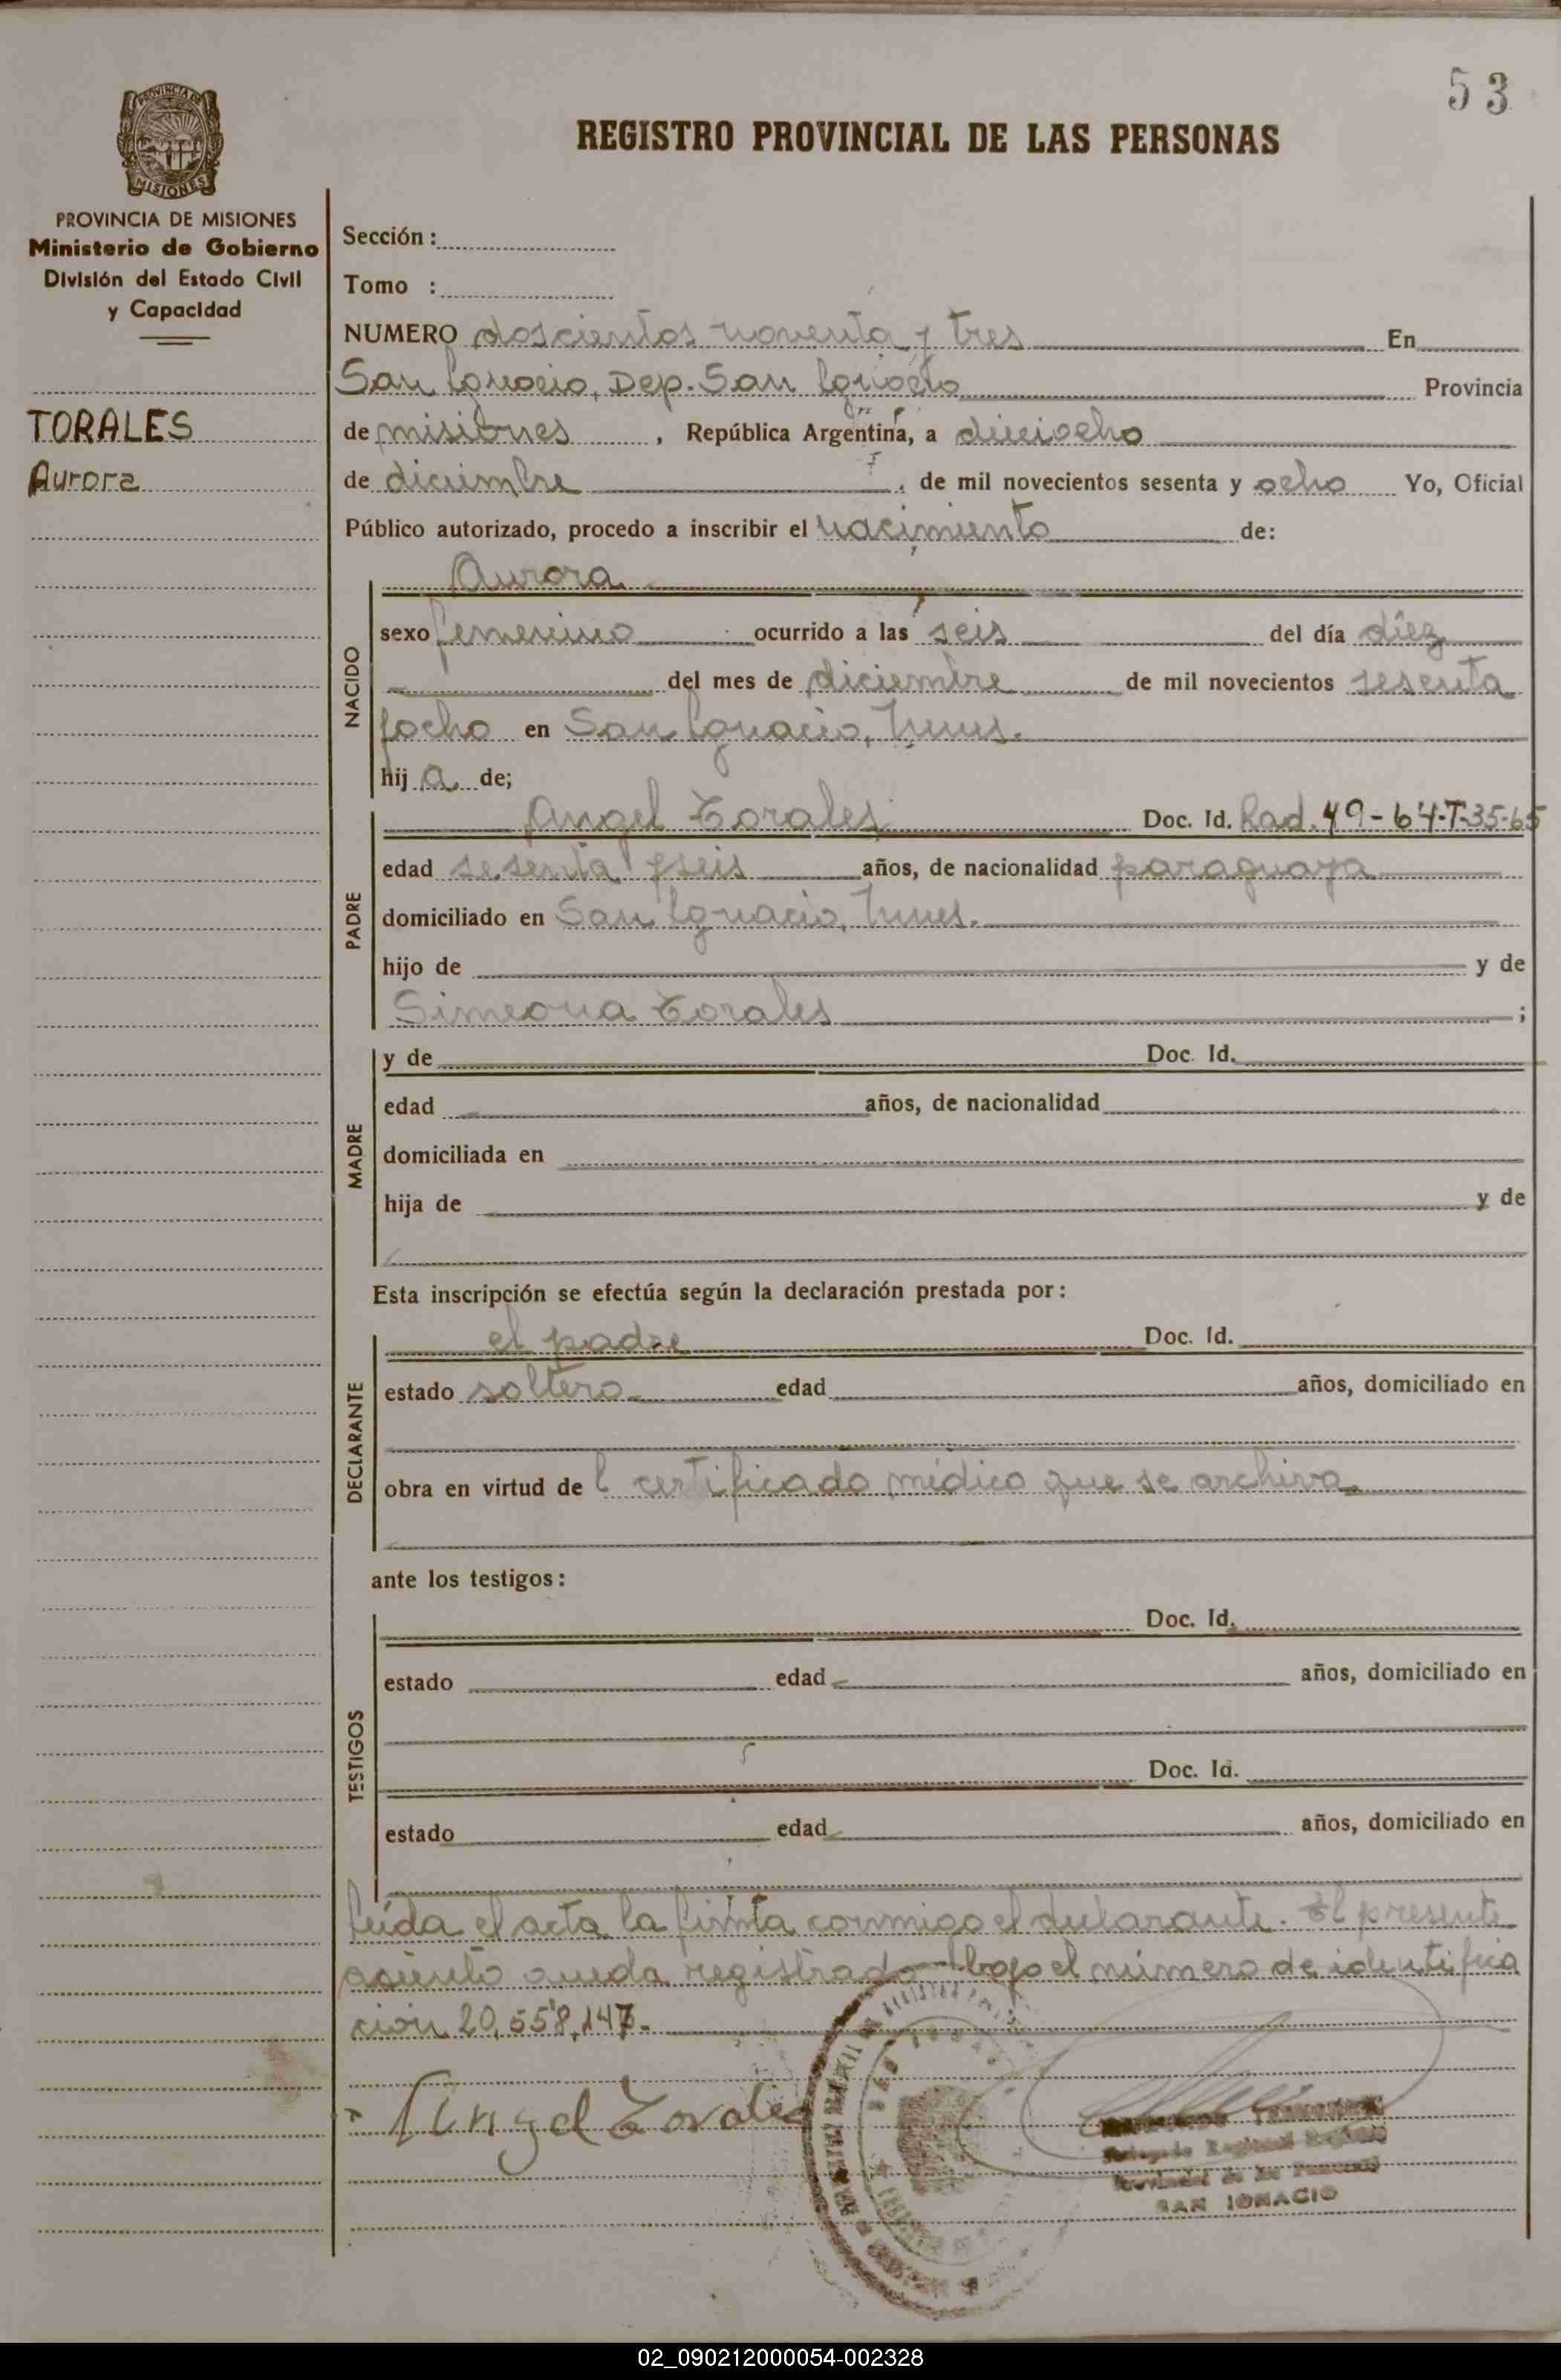 53
REGISTRO PROVINCIAL DE LAS PERSONAS
PROVINCIA DE MISIONES
MISIONES
PROVINCIA DE MISIONES
Ministerio de Gobierno
División del Estado Civil
y Capacidad
TORALES
Aurora
Sección :
Tomo :
NUMERO doscientos noventa y tres En
San Ignacio, Dep. San Ignacio Provincia
de misiones , República Argentina, a dieciocho
de diciembre , de mil novecientos sesenta y ocho Yo, Oficial
Público autorizado, procedo a inscribir el nacimiento de:
NACIDO
Aurora
sexo femenino ocurrido a las seis del día diez
del mes de diciembre de mil novecientos sesenta
y ocho en San Ignacio, Mnes.
hij a de;
PADRE
Angel Torales Doc. Id. Rad. 49-64-T-35-65
edad sesenta y seis años, de nacionalidad paraguaya
domiciliado en San Ignacio, Mnes.
hijo de y de
Simeona Torales ;
MADRE
y de Doc. Id.
edad años, de nacionalidad
domiciliada en
hija de y de
Esta inscripción se efectúa según la declaración prestada por :
DECLARANTE
el padre Doc. Id.
estado soltero edad años, domiciliado en
obra en virtud de l certificado médico que se archiva
ante los testigos :
TESTIGOS
Doc. Id.
estado edad años, domiciliado en
Doc. Id.
estado edad años, domiciliado en
leída el acta la firma conmigo el declarante. El presente
asiento queda registrado bajo el número de identifica
ción 20.558.147.
Angel Torales
Delegado Regional Registro
Provincial de las Personas
SAN IGNACIO
02_090212000054-002328